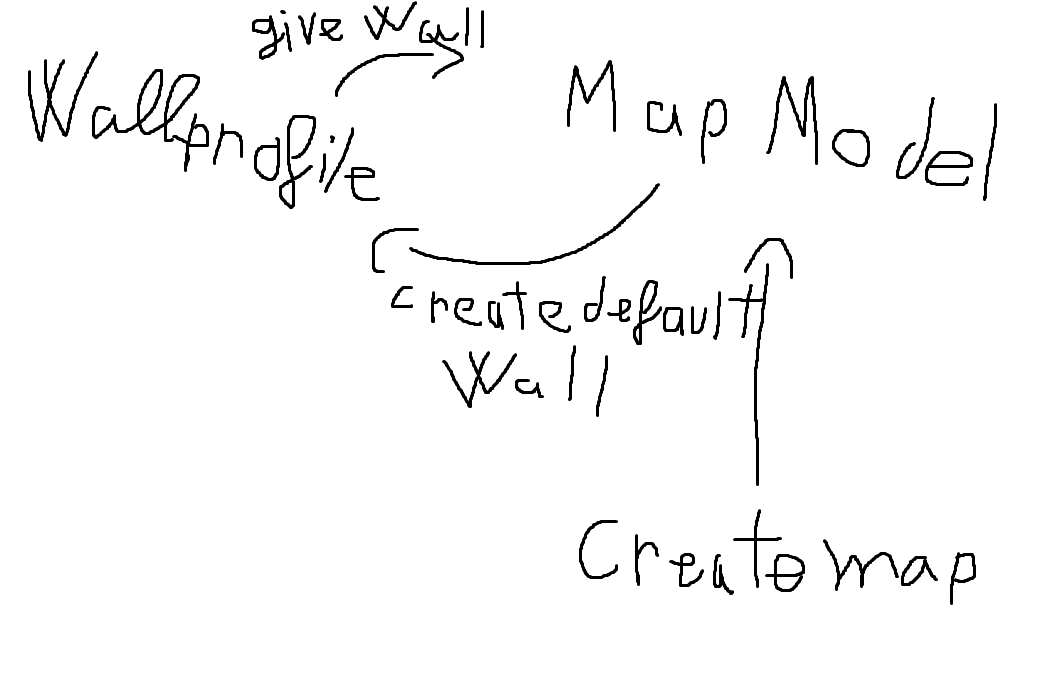 give Wall
Wallprofile
Map Model
create default
Wall
Create map